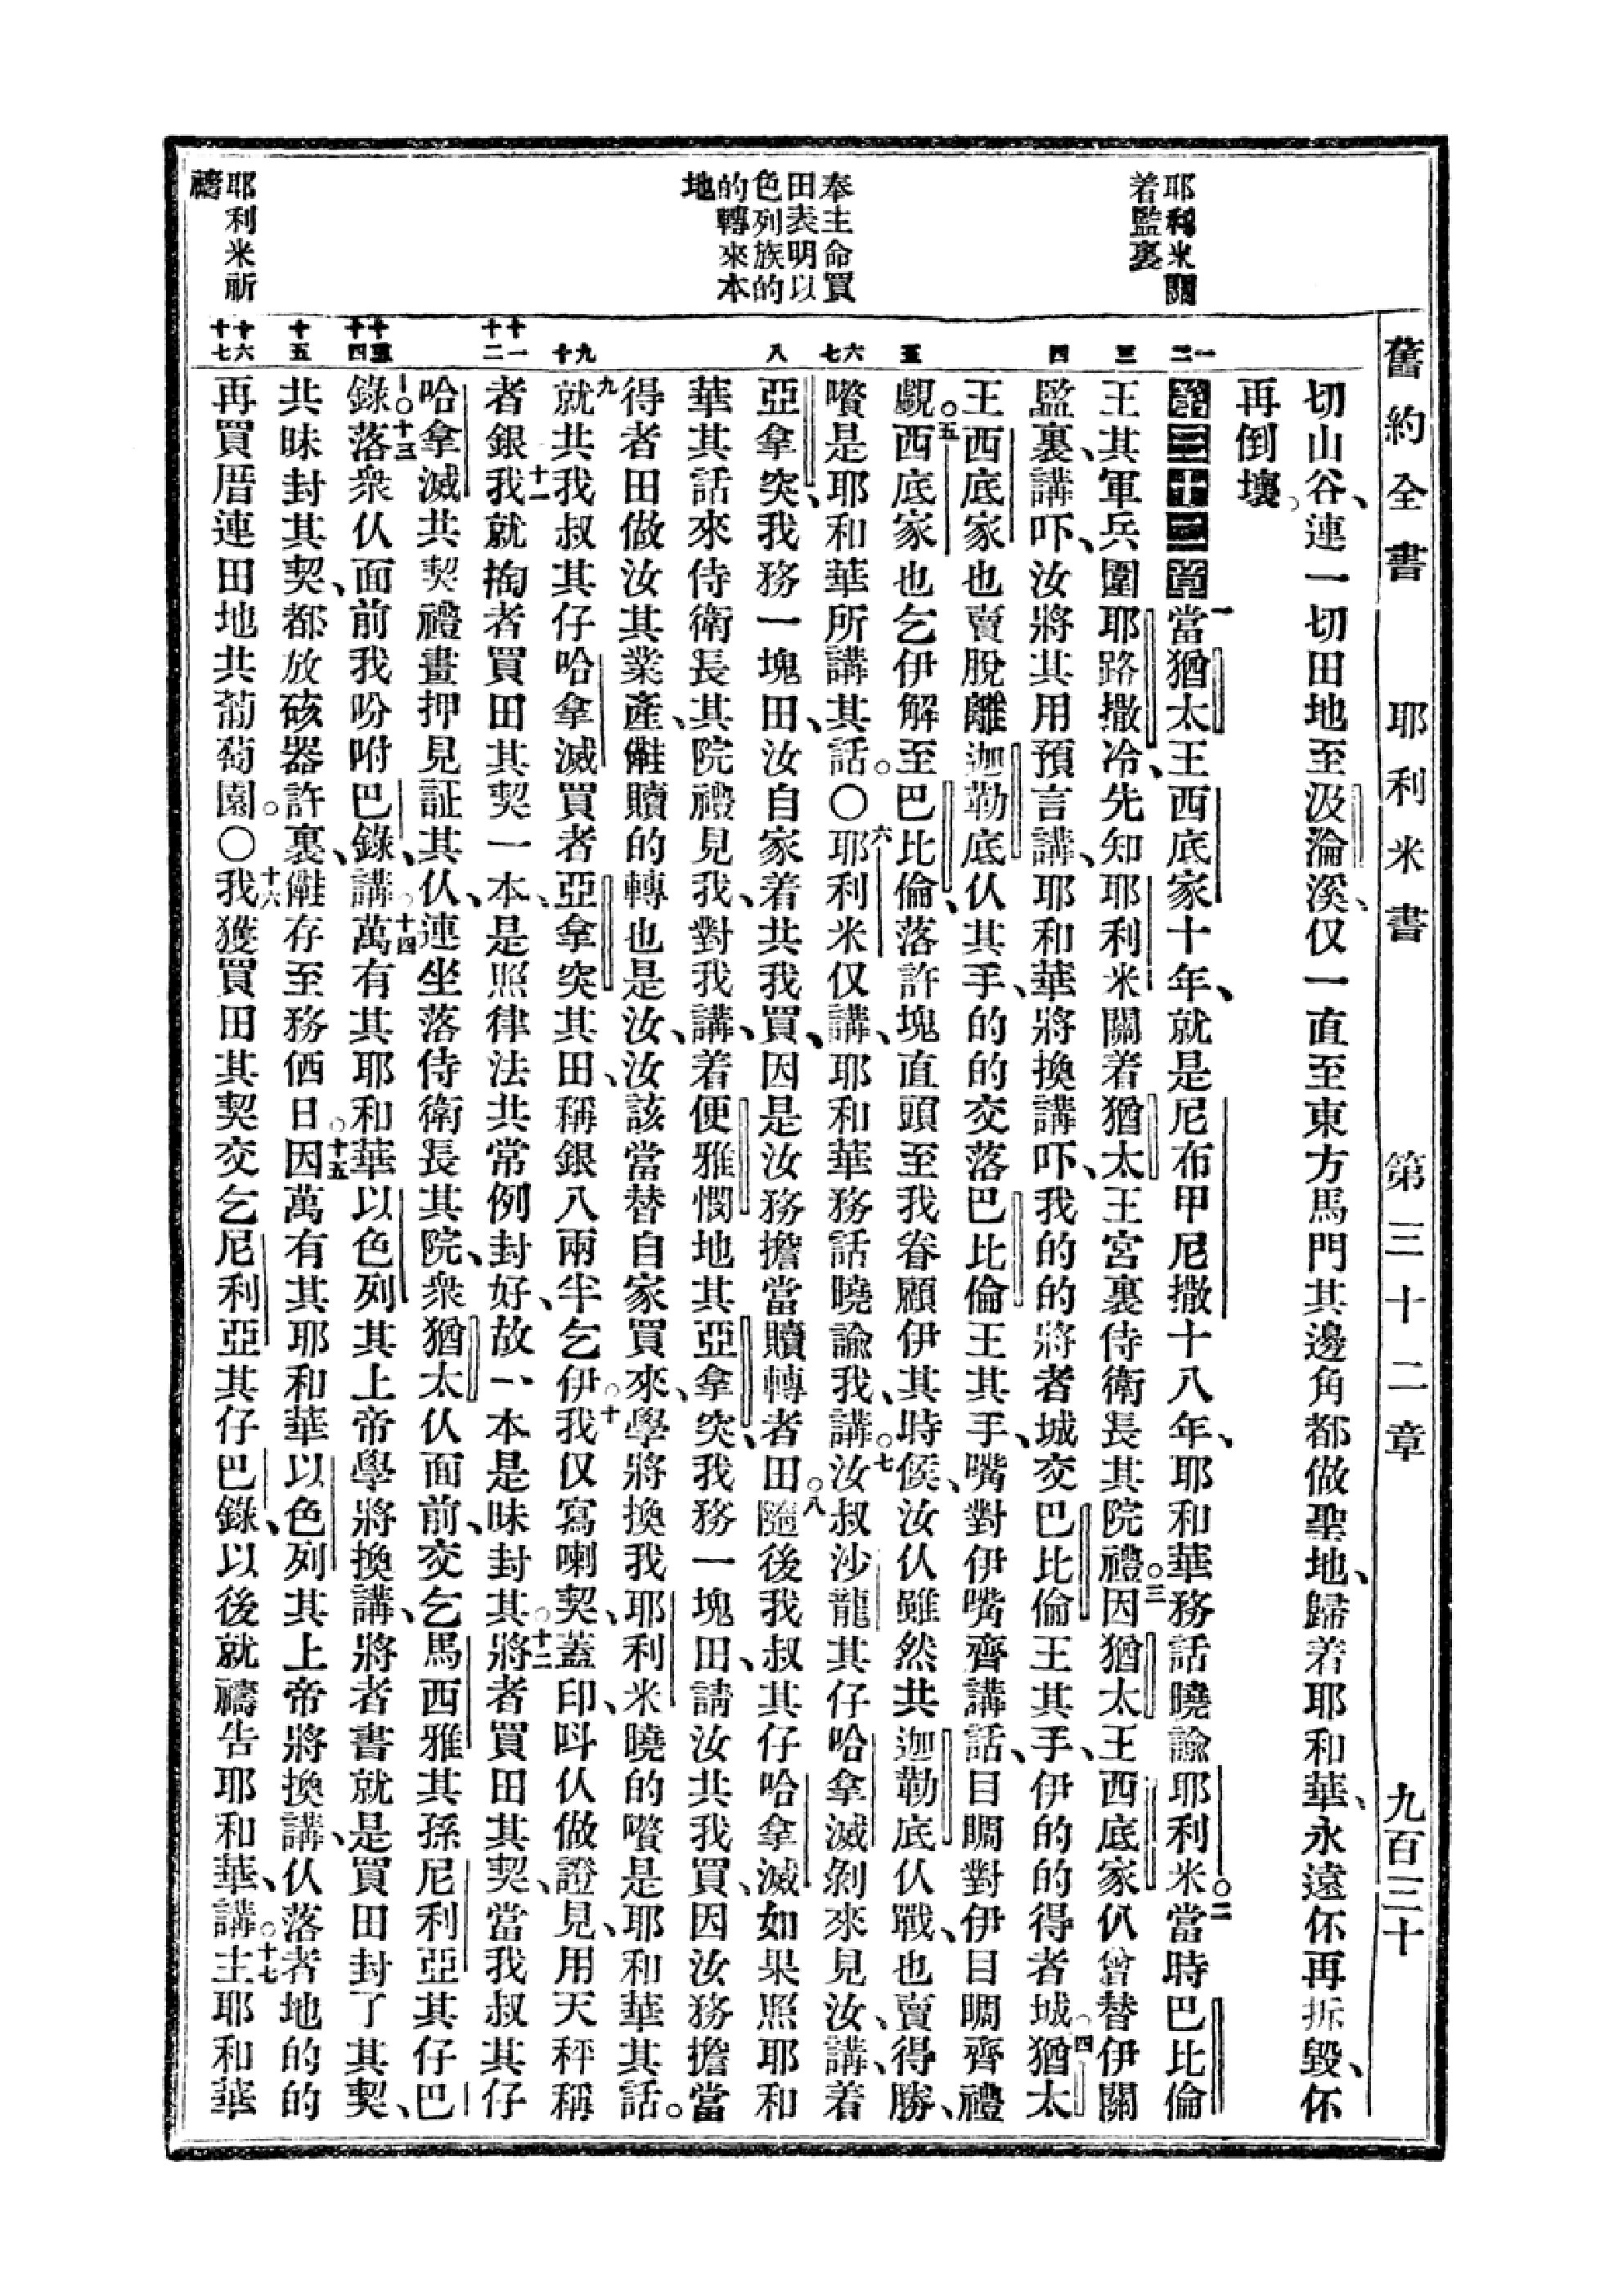 舊約全書 耶利米書 第三十二章 九百三十
耶利米關
着監裏
奉主命買
田表明以
色列族的
的轉來本
地
耶利米祈
禱
一
二
三
四
五
六
七
八
九
十
十一
十二
十三
十四
十五
十六
十七
切山谷、連一切田地至汲淪溪、仅一直至東方馬門其邊角都做聖地、歸着耶和華、永遠伓再拆毀、伓
再倒壞。
第三十二章 一當猶太王西底家十年、就是尼布甲尼撒十八年、耶和華務話曉諭耶利米。二當時巴比倫
王其軍兵圍耶路撒冷、先知耶利米關着猶太王宮裏侍衛長其院禮。三因猶太王西底家仈曾替伊關
監裏、講吓、汝將其用預言講、耶和華將換講吓、我的的將者城交巴比倫王其手、伊的的得者城。四猶太
王西底家也賣脫離迦勒底仈其手、的的交落巴比倫王其手、嘴對伊嘴齊講話、目睭對伊目睭齊禮
覷。五西底家也乞伊解至巴比倫、落許塊直頭至我眷顧伊其時候、汝仈雖然共迦勒底仈戰、也賣得勝、
嚽是耶和華所講其話。〇六耶利米仅講、耶和華務話曉諭我、講。七汝叔沙龍其仔哈拿滅剝來見汝、講、着
亞拿突、我務一塊田、汝自家着共我買、因是汝務擔當贖轉者田。八隨後我叔其仔哈拿滅如果照耶和
華其話來侍衛長其院禮見我、對我講、着便雅憫地其亞拿突、我務一塊田、請汝共我買、因汝務擔當
得者田做汝其業產、儺贖的轉也是汝、汝該當替自家買來、學將換我耶利米曉的嚽是耶和華其話。
九就共我叔其仔哈拿滅買者亞拿突其田、稱銀八兩半乞伊。十我仅寫喇契、蓋印、呌仈做證見、用天秤稱
者銀。十一我就掏者買田其契、一本是照律法共常例封好、故一本是昧封其。十二將者買田其契、當我叔其仔
哈拿滅共契禮畫押見証其仈、連坐落侍衛長其院、衆猶太仈面前、交乞馬西雅其孫尼利亞其仔巴
錄。十三落衆仈面前我吩咐巴錄、講。十四萬有其耶和華以色列其上帝學將換講、將者書就是買田封了其契、
共昧封其契、都放硋器許裏、儺存至務価日。十五因萬有其耶和華以色列其上帝將換講、仈落者地的的
再買厝連田地共葡萄園。〇十六我獲買田其契交乞尼利亞其仔巴錄、以後就禱告耶和華、講。十七主耶和華